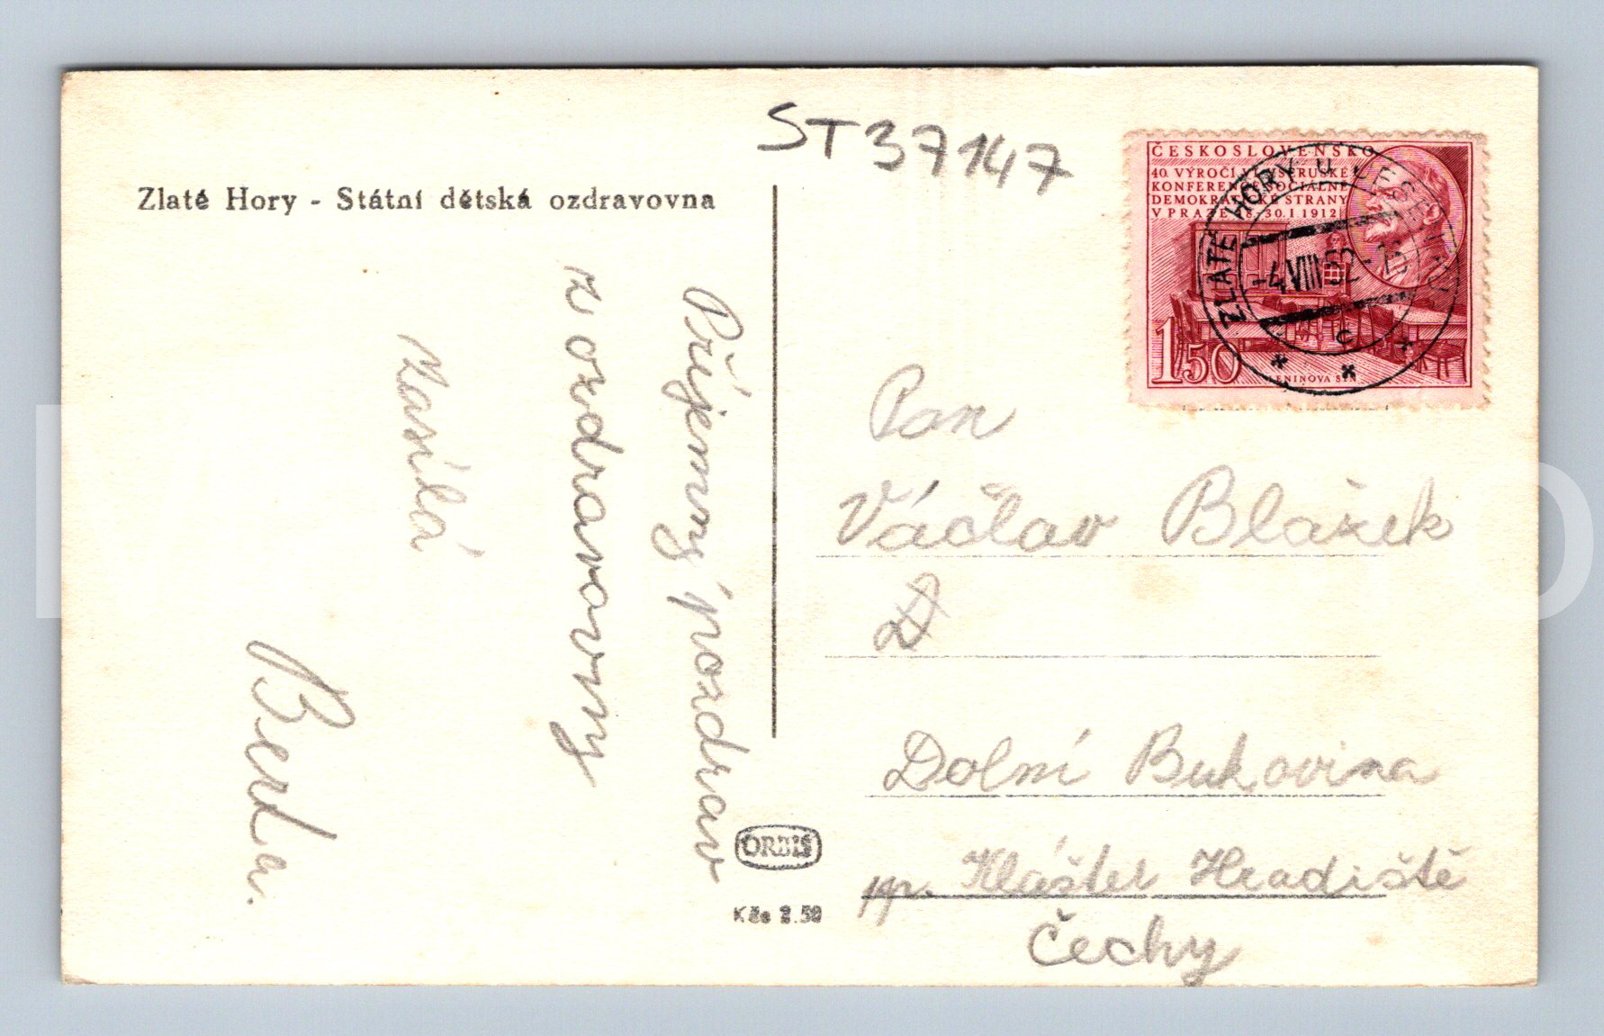 Zlaté Hory - Státní dětská ozdravovna
ST37147
ČESKOSLOVENSKO
40. VÝROČÍ VI. VŠERUSKÉ
KONFERENCE SOCIÁLNĚ
DEMOKRATICKÉ STRANY
V PRAZE 18.-30.I 1912
1,50
LENINOVA SÍŇ
ZLATÉ HORY U
-4.VIII.52
C
Příjemný pozdrav
z ozdravovny
zasílá
Berta.
Pan
Václav Blažek
D
Dolní Bukovina
pp. Klášter Hradiště
Čechy
ORBIS
Kčs 2.50